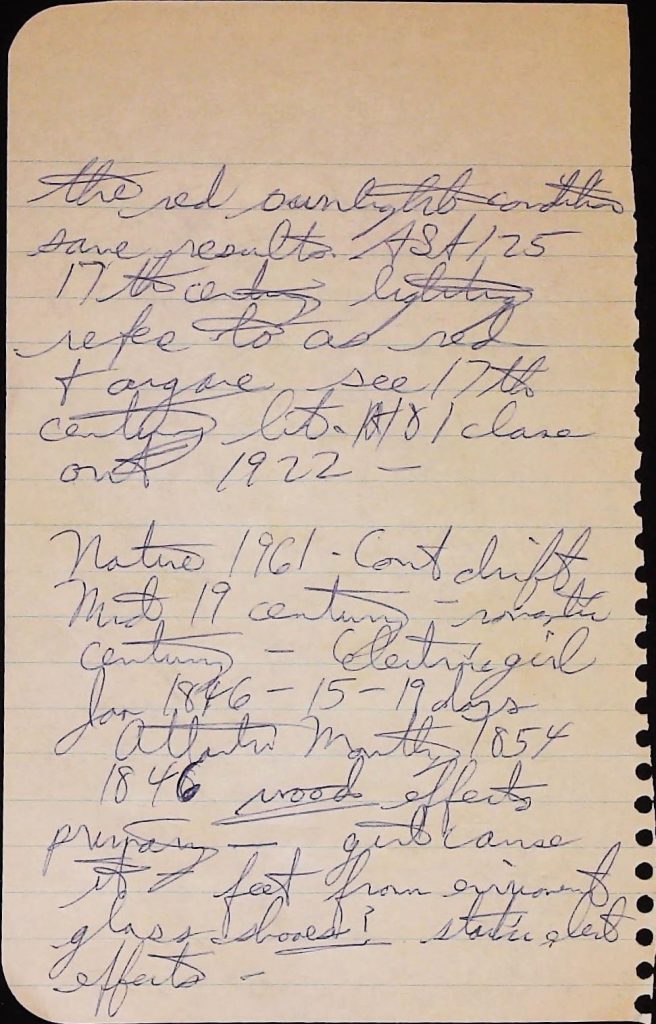 the red sunlight condition
same results. ASA 125
17th century lighting
refer to as red
+ see 17th
century lit. close
out 1922 –
Nature 1961 - Cont drift
Mid 19 century – romantic
century – Electric girl
Jan 1846 – 15 – 19 days
Atlantic Monthly 1854
1846 wood effects
primary – girl cause
it 7 feet from enviroment
glass shoes? static elect
effects –